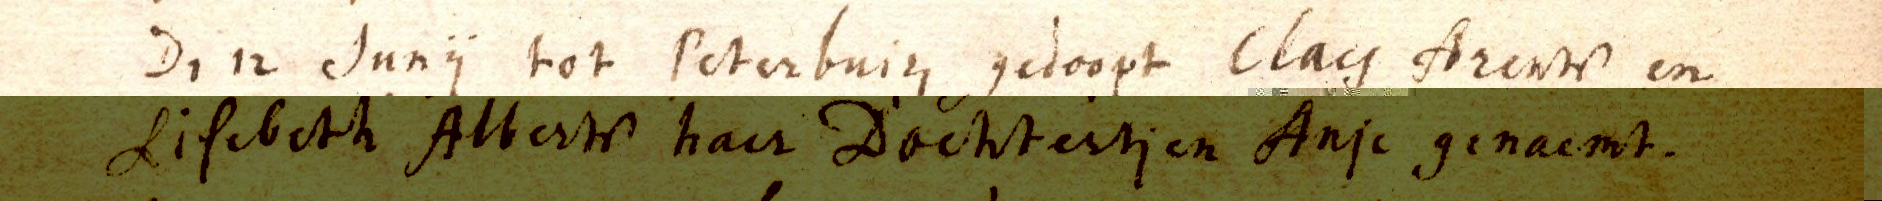 D, 12 Junij tot Peterbuirg gedoopt Claes Arents en
Lisebeth Alberts haer Dochtertjen Anje genaemt.